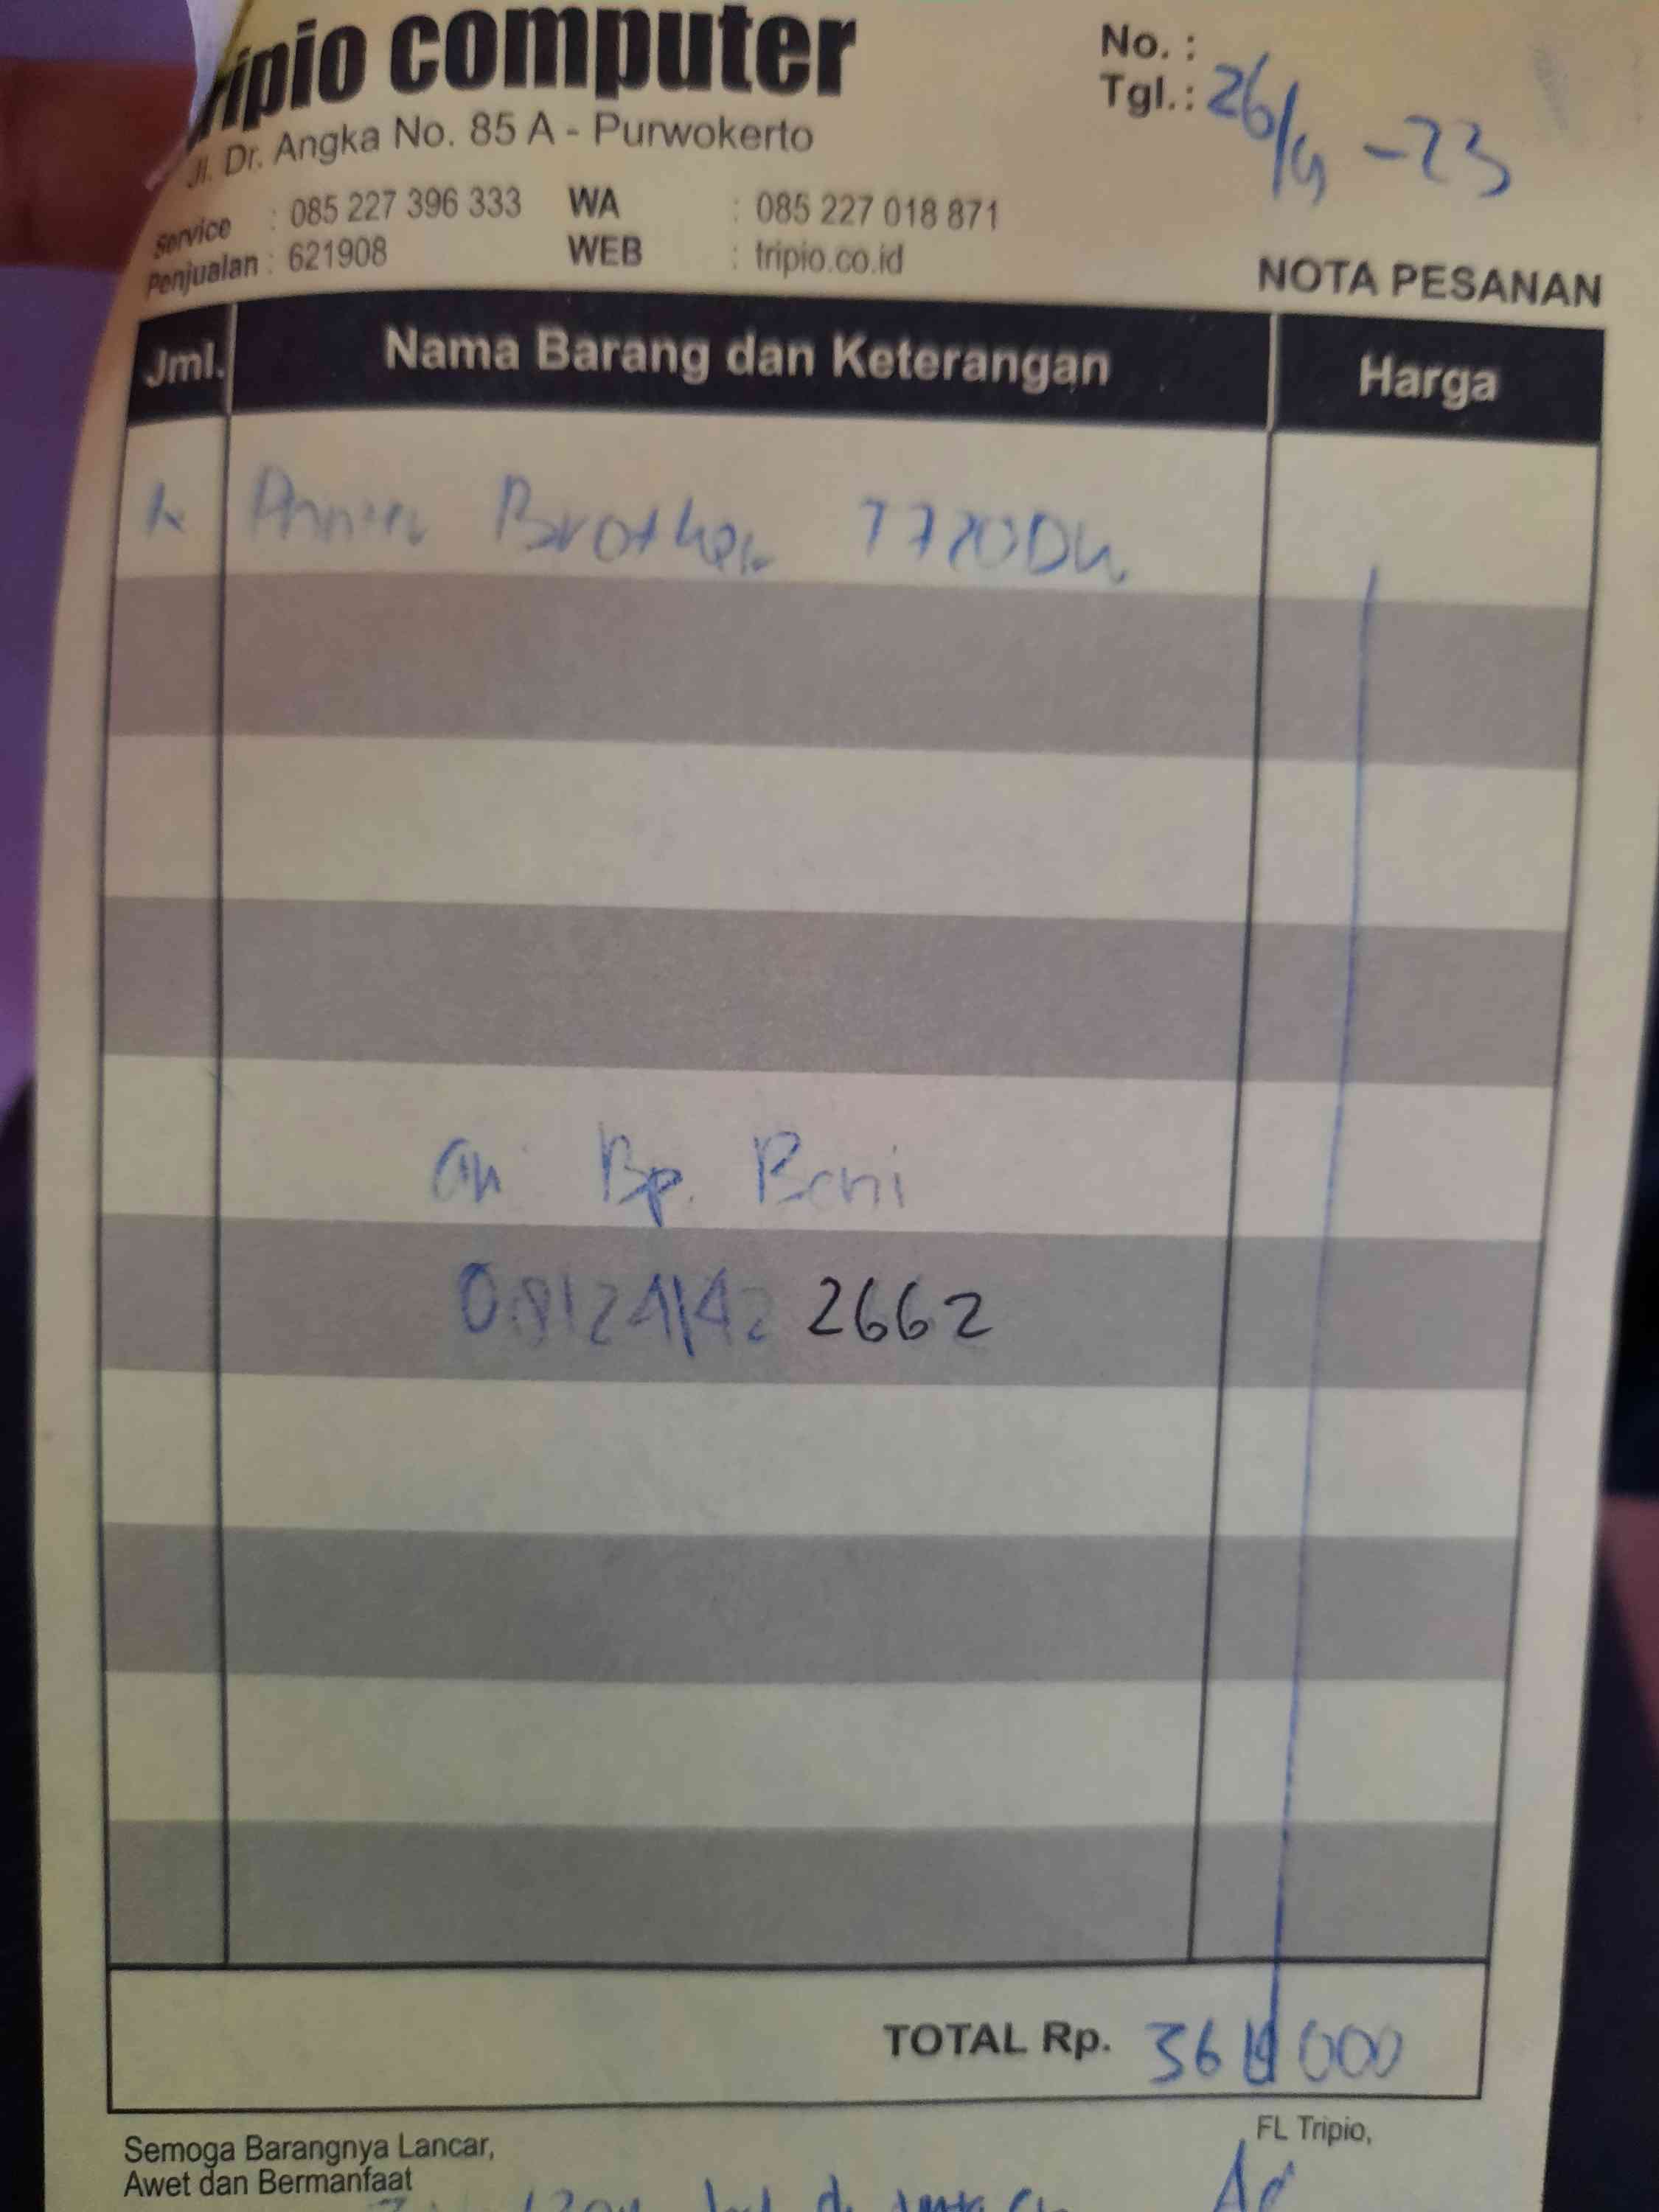 ripio computer
Jl. Dr. Angka No. 85 A - Purwokerto
Service : 085 227 396 333 WA : 085 227 018 871
Penjualan : 621908 WEB : tripio.co.id
No. :
Tgl. : 26/9 - 23
NOTA PESANAN
Jml. Nama Barang dan Keterangan Harga
Printer Brother
an Bp. Beni
2662
TOTAL Rp. 000
Semoga Barangnya Lancar,
Awet dan Bermanfaat
FL Tripio,